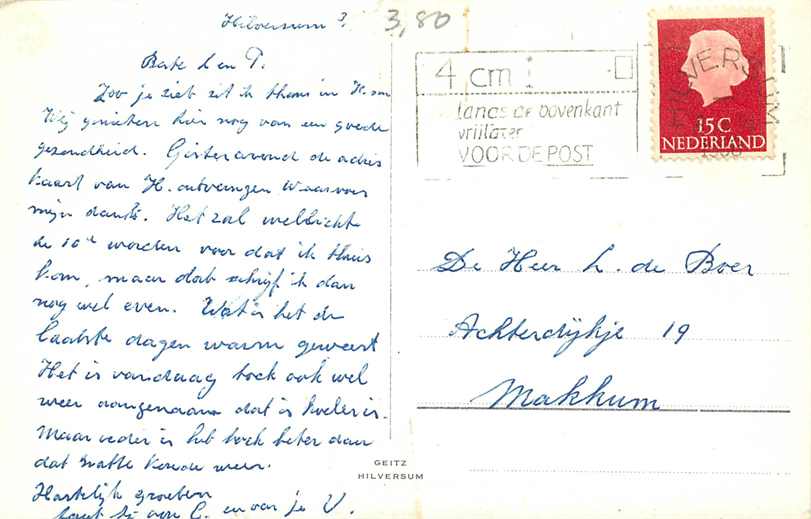 Hilversum 3.
3,80
Beste L en P.
Zoo je ziet zit ik thans in H.
Wij genieten hier nog van een goede
gezondheid. Gisteravond de adres
kaart van H. ontvangen waarvoor
mijn dank. Het zal wellicht
de 10e worden voor dat ik thuis
kom, maar dat schrijf ik dan
nog wel even. Wat is het de
laatste dagen warm geweest
Het is vandaag toch ook wel
weer aangenaam dat is koeler is.
Maar ieder is het toch beter dan
dat natte koude weer.
Hartelijk groeten
C. en van je V.
4 cm
langs de bovenkant
vrijlaten
VOOR DE POST
HILVERSUM
15 C
NEDERLAND
De Heer L. de Boer
Achterdijkje 19
Makkum
GEITZ
HILVERSUM